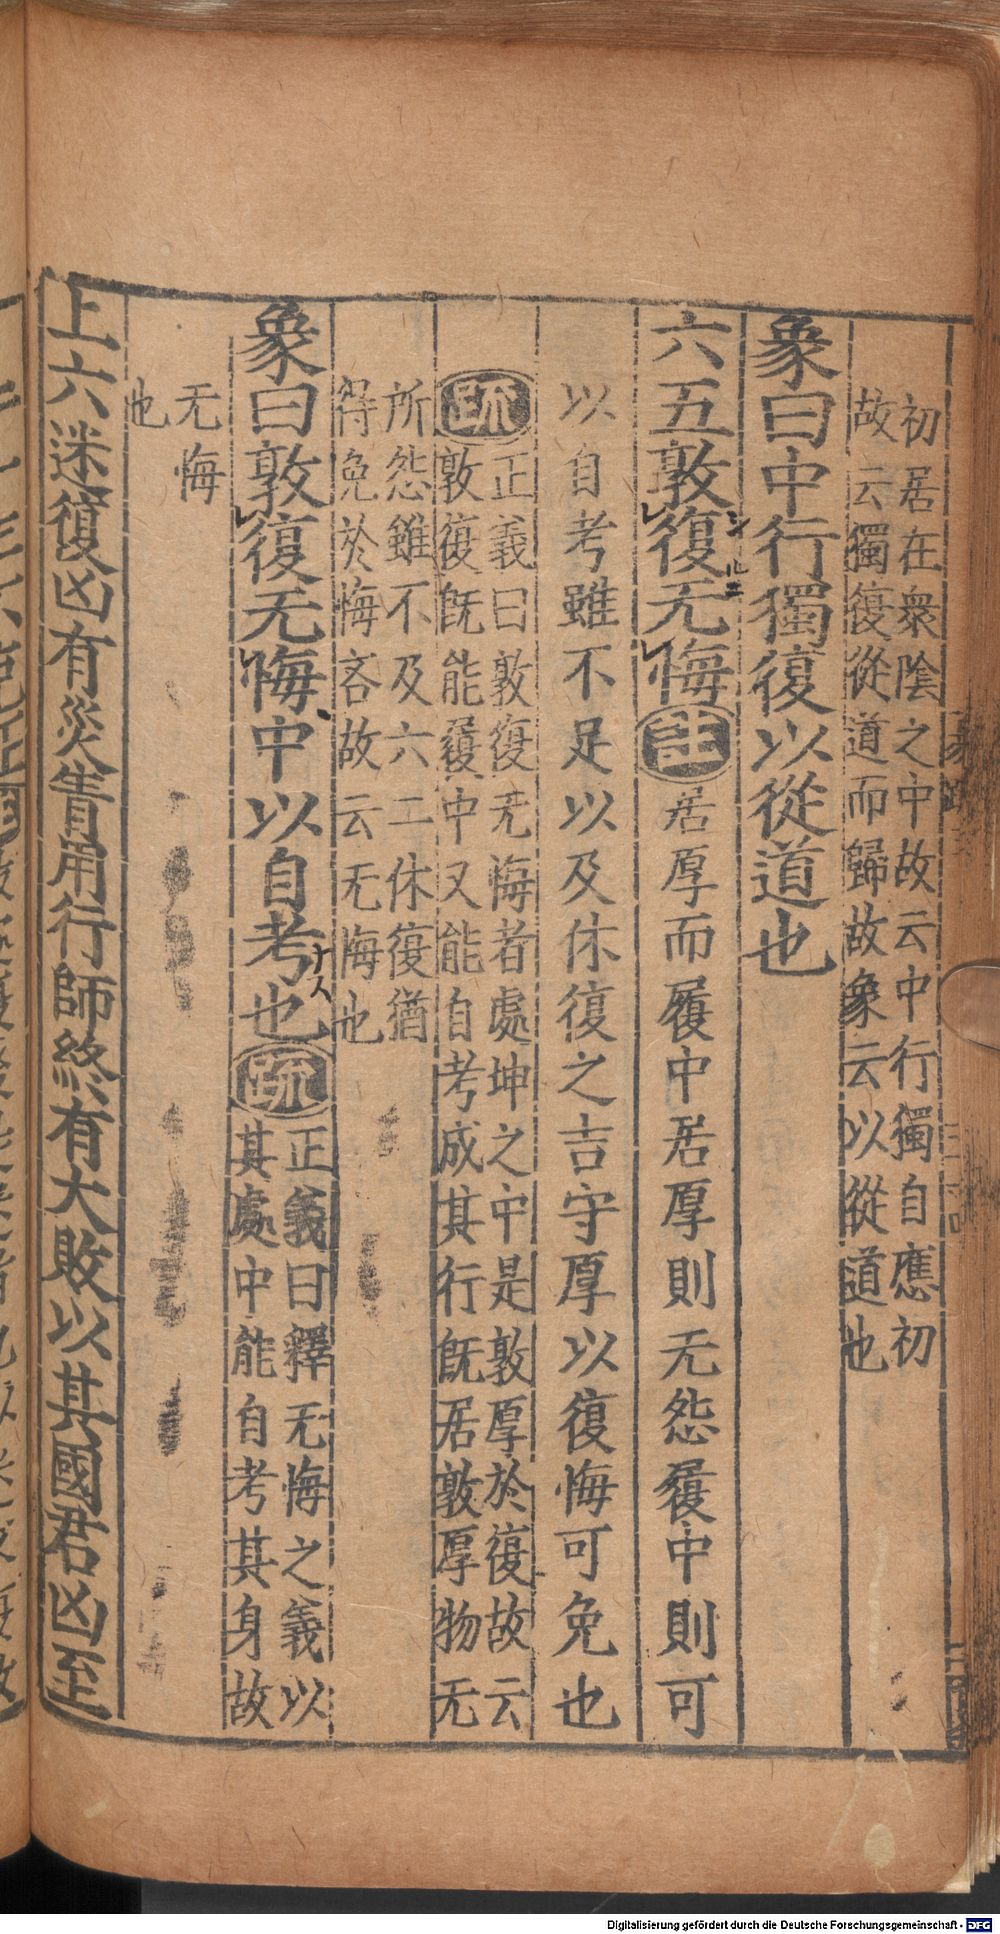 初居在衆陰之中故云中行獨自應初
故云獨復從道而歸故象云以從道也
象曰中行獨復以從道也
六五敦復无悔註居厚而履中居厚則无怨履中則可
以自考雖不足以及休復之吉守厚以復悔可免也
疏正義曰敦復无悔者處坤之中是敦厚於復故云
敦復旣能履中又能自考成其行旣居敦厚物无
所怨雖不及六二休復猶
得免於悔吝故云无悔也
象曰敦復无悔中以自考也疏正義曰釋无悔之義以
其處中能自考其身故
无悔
也
上六迷復凶有災眚用行師終有大敗以其國君凶至
Digitalisierung gefördert durch die Deutsche Forschungsgemeinschaft - DFG